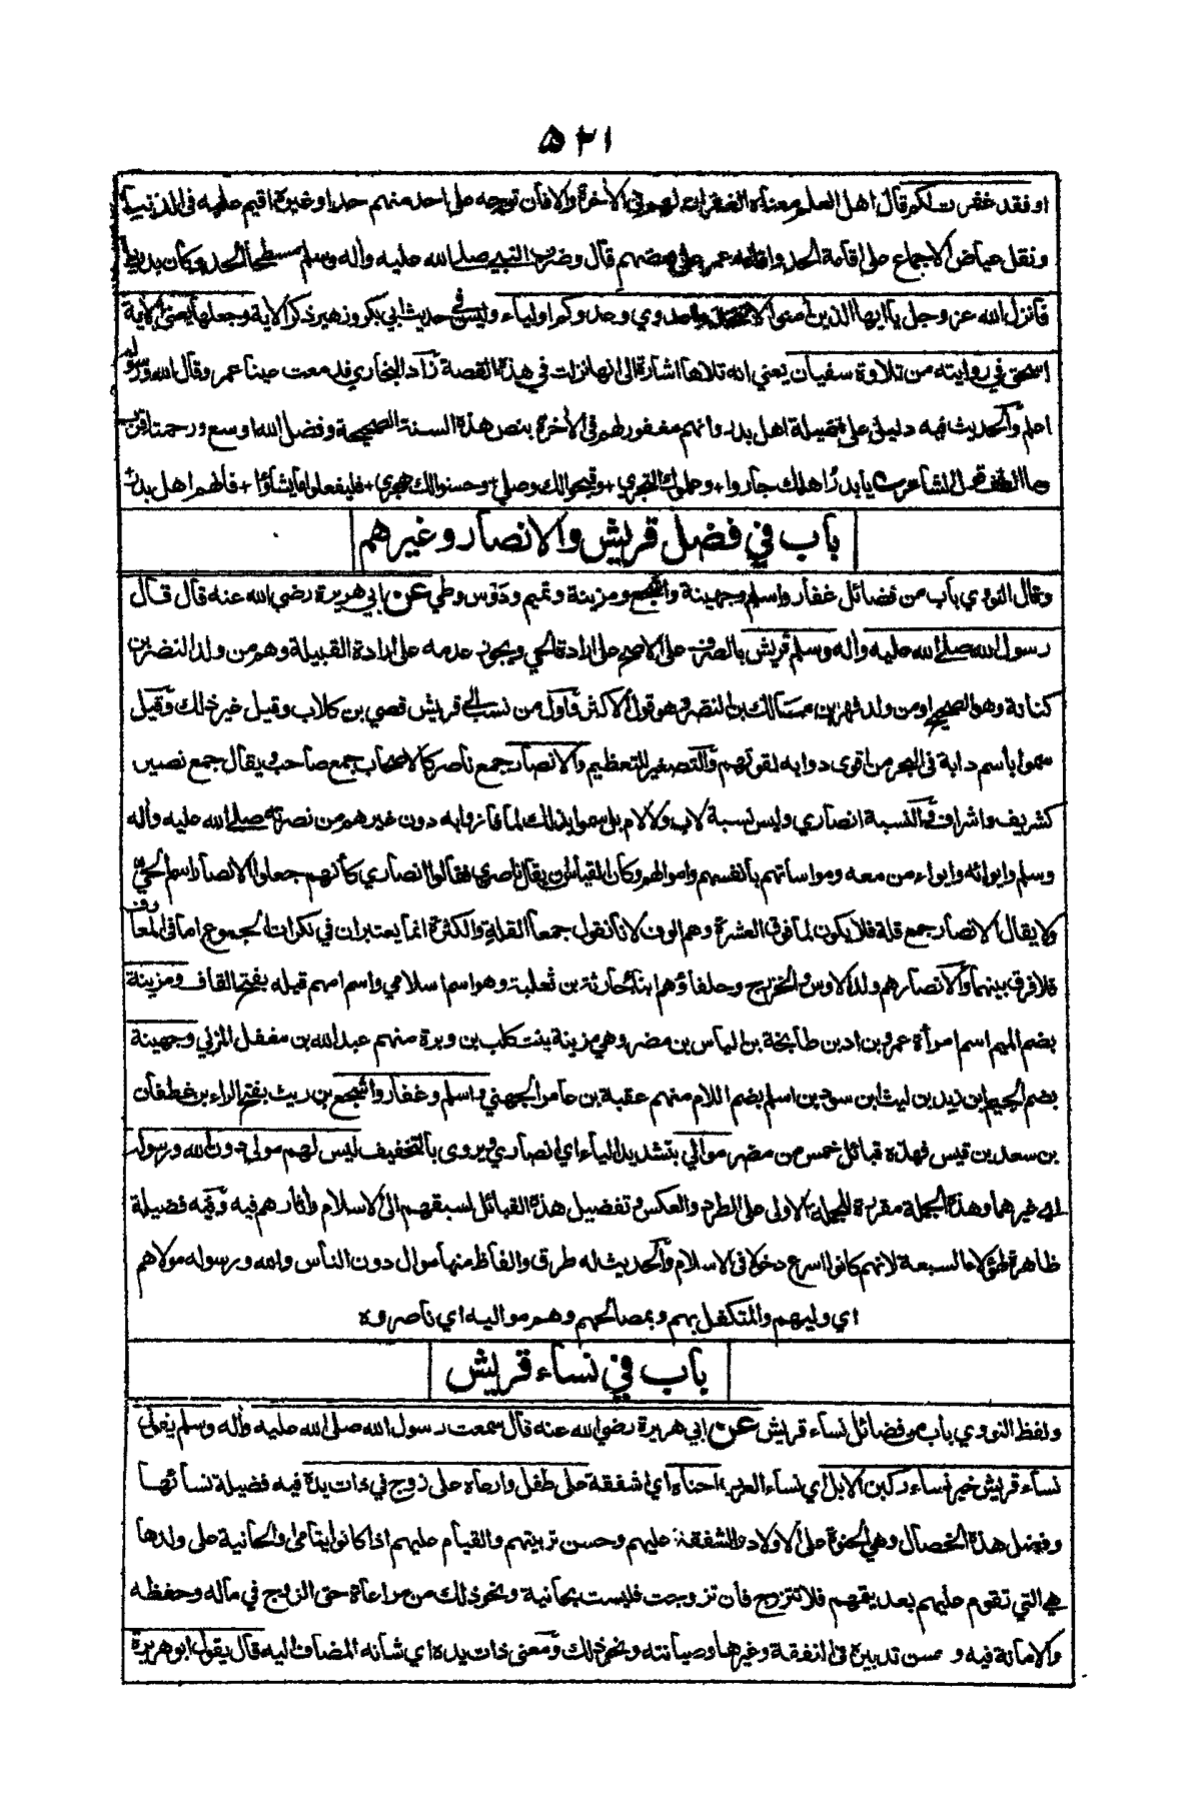 ۵۲۱
او فقد غفرت لكم قال اهل العلم معناه الغفران لهم في الأخرة والا فان توجه على احد منهم حد او غيره اقيم عليه في الدنيا
ونقل عياض الاجماع على اقامة الحد واقامه عمر على بعضهم قال وضرب النبي صلى الله عليه وأله وسلم مسطحا الحد وكان بدريا
فانزل الله عز وجل يا ايها الذين أمنوا لا تتخذوا عدوي وعدوكم اولياء وليس في حديث ابي بكر وزهير ذكر الاية وجعلها يعني الاية
اسحق في روايته من تلاوة سفيان يعني انه تلاها اشارة الى انها نزلت في هذه القصة زاد البخاري فدمعت عينا عمر وقال الله ورسوله
اعلم والحديث فيه دليل على فضيلة اهل بدر وانهم مغفور لهم في الأخرة بنص هذه السنة الصحيحة وفضل الله اوسع ورحمته اقرب
وما الطف قول الشاعر يا بدر اهلك جاروا + وعلموك التجري + وقبحوا لك وصلي + وحسنوا لك هجري + فليفعلوا ما يشاؤا + فانهم اهل بدر
باب في فضل قريش والانصار وغيرهم
وقال النووي باب من فضائل غفار واسلم وجهينة واشجع ومزينة وتميم ودوس وطي عن ابي هريرة رضي الله عنه قال قال
رسول الله صلى الله عليه وأله وسلم قريش بالصرف على الاصح على ارادة الحي ويجوز عدمه على ارادة القبيلة وهم من ولد النضر بن
كنانة وهو الصحيح او من ولد فهر بن مالك بن النضر وهو قول الاكثر واول من نسب الى قريش قصي بن كلاب وقيل غير ذلك وقيل
سموا باسم دابة في البحر من اقوى دوابه لقوتهم والتصغير للتعظيم والانصار جمع ناصر كالاصحاب جمع صاحب ويقال جمع نصير
كشريف واشراف والنسبة انصاري وليس نسبة لاب ولا لام بل سموا بذلك لما فازوا به دون غيرهم من نصرته صلى الله عليه وأله
وسلم وايوائه وايواء من معه ومواساتهم بانفسهم واموالهم وكان القياس ان يقال ناصري فقالوا انصاري كأنهم جعلوا الانصار اسم الحي
ولا يقال الانصار جمع قلة فلا يكون لما فوق العشرة وهم الوف لانا نقول جمعا القلة والكثرة انما يعتبران في نكرات الجموع اما في المعارف
فلا فرق بينهما والانصار هم ولد الاوس والخزرج وحلفاؤهم ابناء حارثة بن ثعلبة وهو اسم اسلامي واسم امهم قيله بفتح القاف ومزينة
بضم الميم اسم امرأة عمرو بن اد بن طابخة بن الياس بن مضر وهي مزينة بنت كلب بن وبرة منهم عبد الله بن مغفل المزني وجهينة
بضم الجيم ابن زيد بن ليث ابن سود بن اسلم بضم اللام منهم عقبة بن عامر الجهني واسلم وغفار واشجع بن ريث بفتح الراء بن غطفان
بن سعد بن قيس فهذه قبائل خمس من مضر موالي بتشديد الياء اي انصاري ويروى بالتخفيف ليس لهم مولى دون الله ورسوله
اي غيرهما وهذه الجملة مقررة للجملة الاولى على الطرد والعكس وتفضيل هذه القبائل لسبقهم الى الاسلام وأثارهم فيه وفيه فضيلة
ظاهرة لهؤلاء السبعة لانهم كانوا اسرع دخولا في الاسلام والحديث له طرق والفاظ منها موال دون الناس والله ورسوله مولاهم
اي وليهم والمتكفل بهم وبمصالحهم وهم مواليه اي ناصروه
باب في نساء قريش
ولفظ النووي باب من فضائل نساء قريش عن ابي هريرة رضي الله عنه قال سمعت رسول الله صلى الله عليه وأله وسلم يقول
نساء قريش خير نساء ركبن الابل اي نساء العرب احناه اي اشفقه على طفل وارعاه على زوج في ذات يده فيه فضيلة نسائها
وفضل هذه الخصال وهي الحنوة على الاولاد والشفقة عليهم وحسن تربيتهم والقيام عليهم اذا كانوا يتامى والحانية على ولدها
هي التي تقوم عليهم بعد يتمهم فلا تتزوج فان تزوجت فليست بحانية ونحو ذلك من مراعاة حق الزوج في ماله وحفظه
والامانة فيه وحسن تدبيره في النفقة وغيرها وصيانته ونحو ذلك ومعنى ذات يده اي شانه المضاف اليه قال يقول ابو هريرة